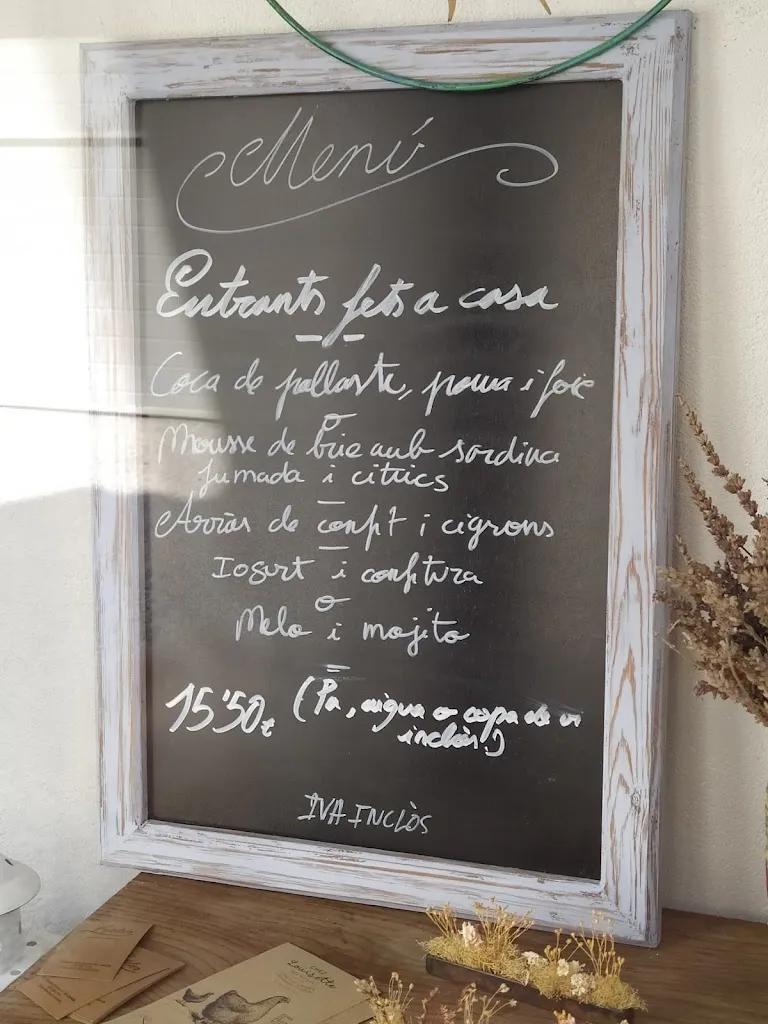 Menú
Entrants fets a casa
Coca de pollastre, poma i foie
o
Mousse de brie amb sardina
fumada i cítrics
Arròs de confit i cigrons
Iogurt i confitura
o
Melo i mojito
15'50€ (Pa, aigua o copa de vi
inclòs)
IVA INCLÒS
Louisette